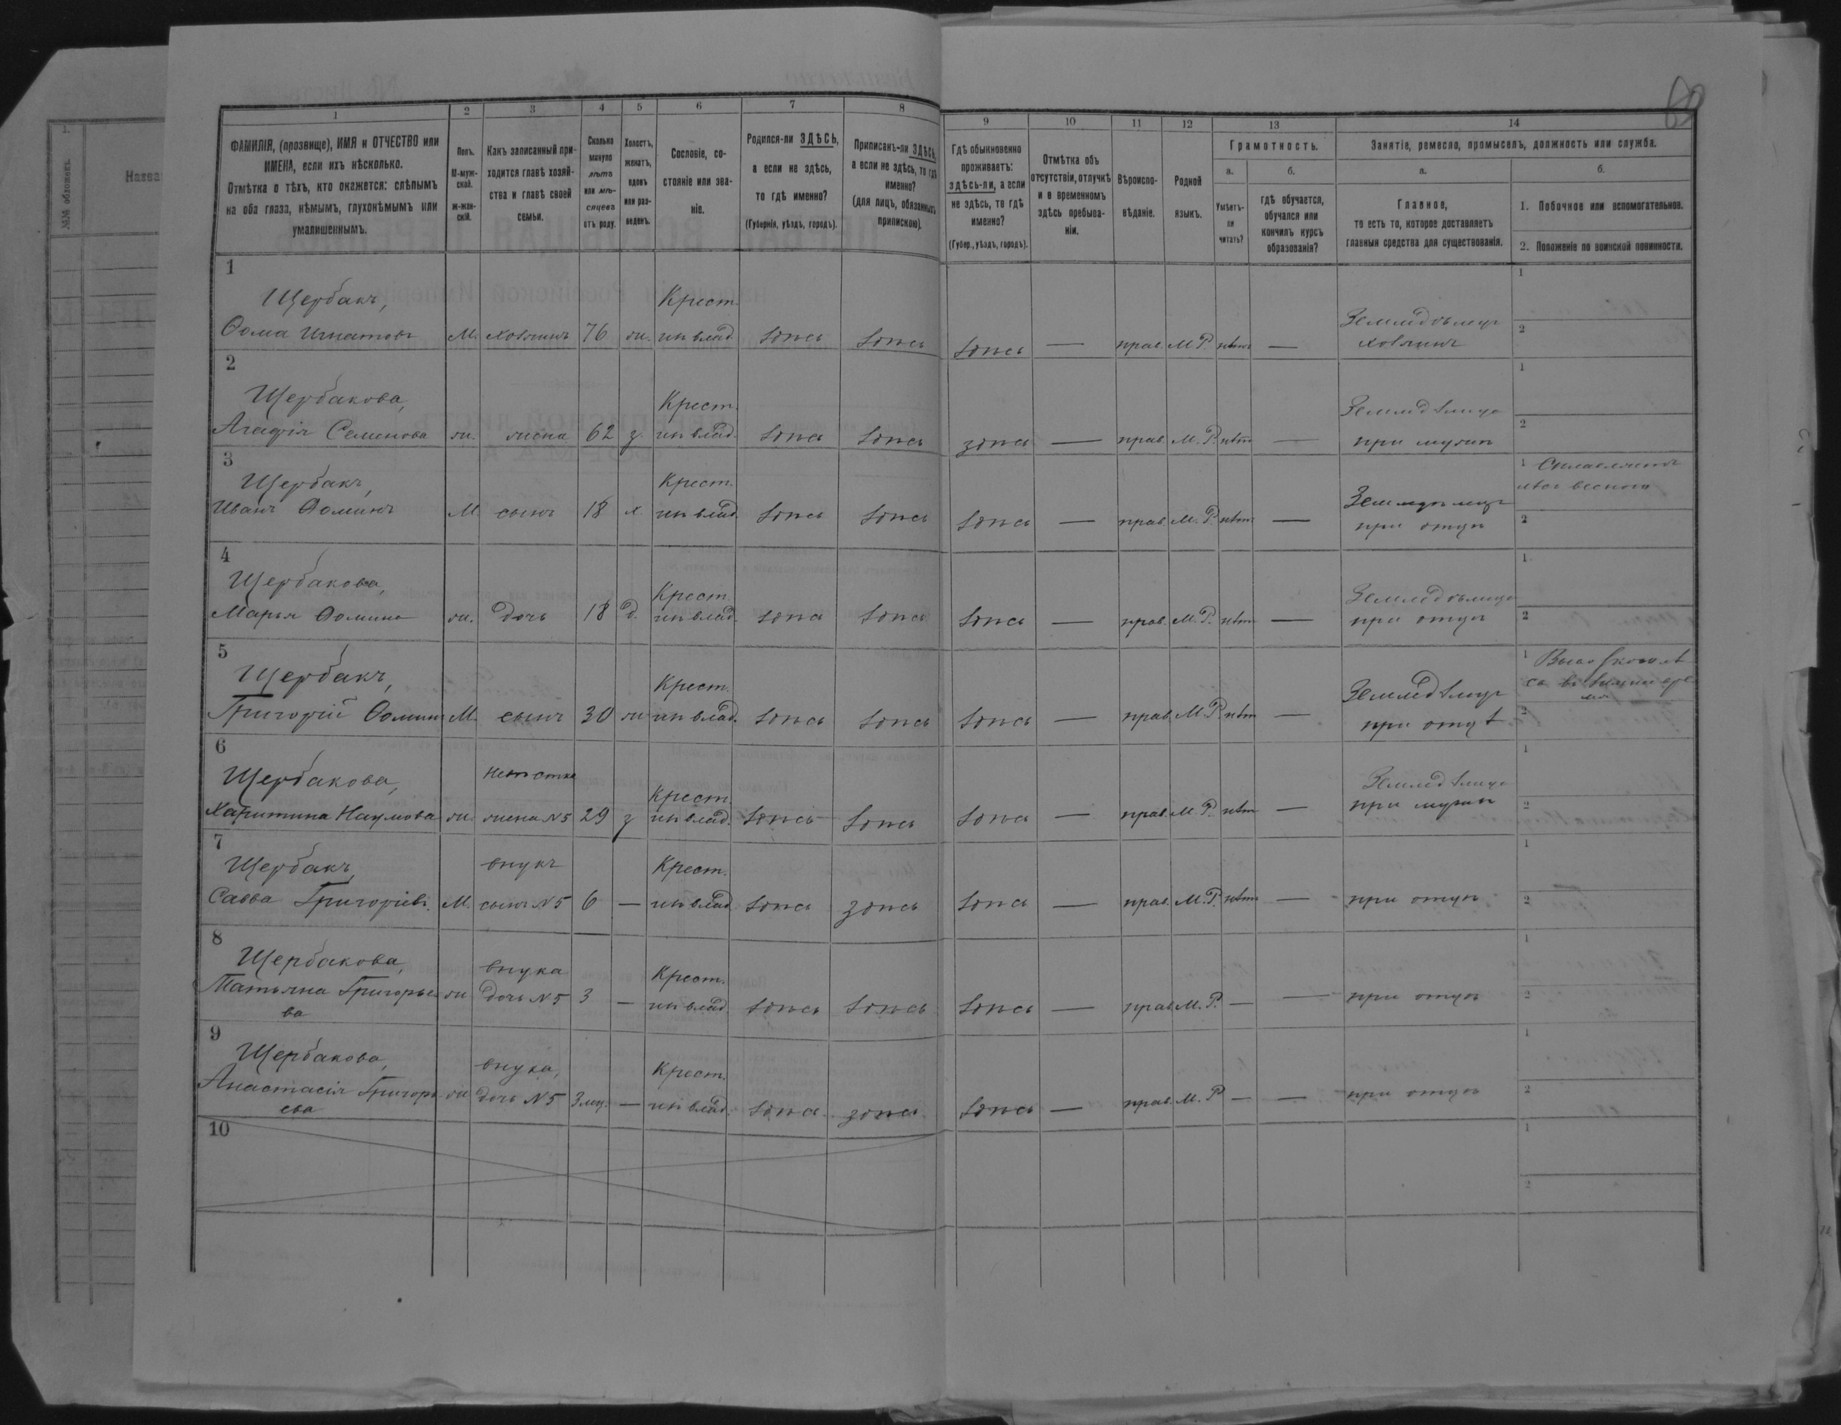 1 2 3 4 5 6 7 8 9 10 11 12 13 14
ФАМИЛІЯ, (прозвище), ИМЯ и ОТЧЕСТВО или
ИМЕНА, если ихъ нѣсколько.
Отмѣтка о тѣхъ, кто окажется: слѣпымъ
на оба глаза, нѣмымъ, глухонѣмымъ или
умалишеннымъ.
Полъ.
М-муж-
ской.
Ж-жен-
скій.
Какъ записанный при-
ходится главѣ хозяй-
ства и главѣ своей
семьи.
Сколько
минуло
лѣтъ
или мѣ-
сяцевъ
отъ роду.
Холостъ,
женатъ,
вдовъ
или раз-
веденъ.
Сословіе, со-
стояніе или зва-
ніе.
Родился-ли ЗДѢСЬ,
а если не здѣсь,
то гдѣ именно?
(Губернія, уѣздъ, городъ).
Приписанъ-ли ЗДѢСЬ,
а если не здѣсь, то гдѣ
именно?
(для лицъ, обязанныхъ
припискою).
Гдѣ обыкновенно
проживаетъ:
здѣсь-ли, а если
не здѣсь, то гдѣ
именно?
(Губер., уѣздъ, городъ).
Отмѣтка объ
отсутствіи, отлучкѣ
и о временномъ
здѣсь пребыва-
ніи.
Вѣроиспо-
вѣданіе.
Родной
языкъ.
Грамотность.
а.
Умѣетъ-
ли
читать?
б.
гдѣ обучается,
обучался или
кончилъ курсъ
образованія?
Занятіе, ремесло, промыселъ, должность или служба.
а.
Главное,
то есть то, которое доставляетъ
главныя средства для существованія.
б.
1. Побочное или вспомогательное.
2. Положеніе по воинской повинности.
1
Щербакъ, Крест.
Ѳома Игнатовъ М. хозяинъ 76 ж. ин влад. здесь здесь здесь — прав. М.Р. нѣтъ —
Земледѣлецъ
хозяинъ
1
2
2
Щербакова, Крест.
Агафія Семенова ж. жена 62 з. ин влад. здесь здесь здесь — прав. М.Р. нѣт —
Земледѣлица
при мужѣ
1
2
3
Щербакъ, Крест.
Иванъ Ѳоминъ М. сынъ 18 х. ин влад. здесь здесь здесь — прав. М.Р. нѣт —
Земледѣлецъ
при отцѣ
1
лѣсъ весною
2
4
Щербакова, Крест.
Марья Ѳомина ж. дочь 18 д. ин влад. здесь здесь здесь — прав. М.Р. нѣт —
Земледѣлица
при отцѣ
1
2
5
Щербакъ, Крест.
Григорій Ѳоминъ М. сынъ 30 ж. ин влад. здесь здесь здесь — прав. М.Р. нѣт —
Земледѣлецъ
при отцѣ
1
2
6
Щербакова, невѣстка Крест.
Харитина Наумова ж. жена №5 29 з ин влад. здесь здесь здесь — прав. М.Р. нѣт —
Земледѣлица
при мужѣ
1
2
7
Щербакъ, внукъ Крест.
Савва Григоріевъ. М. сынъ №5 6 — ин влад. здесь здесь здесь — прав. М.Р. нѣт — при отцѣ
1
2
8
Щербакова, внука Крест.
Татьяна Григорье ж дочь №5 3 — ин влад. здесь здесь здесь — прав. М.Р. — — при отцѣ
ва
1
2
9
Щербакова, внука, Крест.
Анастасія Григорь ж дочь №5 3 мц. — ин влад. здесь здесь здесь — прав. М.Р — — при отцѣ
ева
1
2
10
1
2